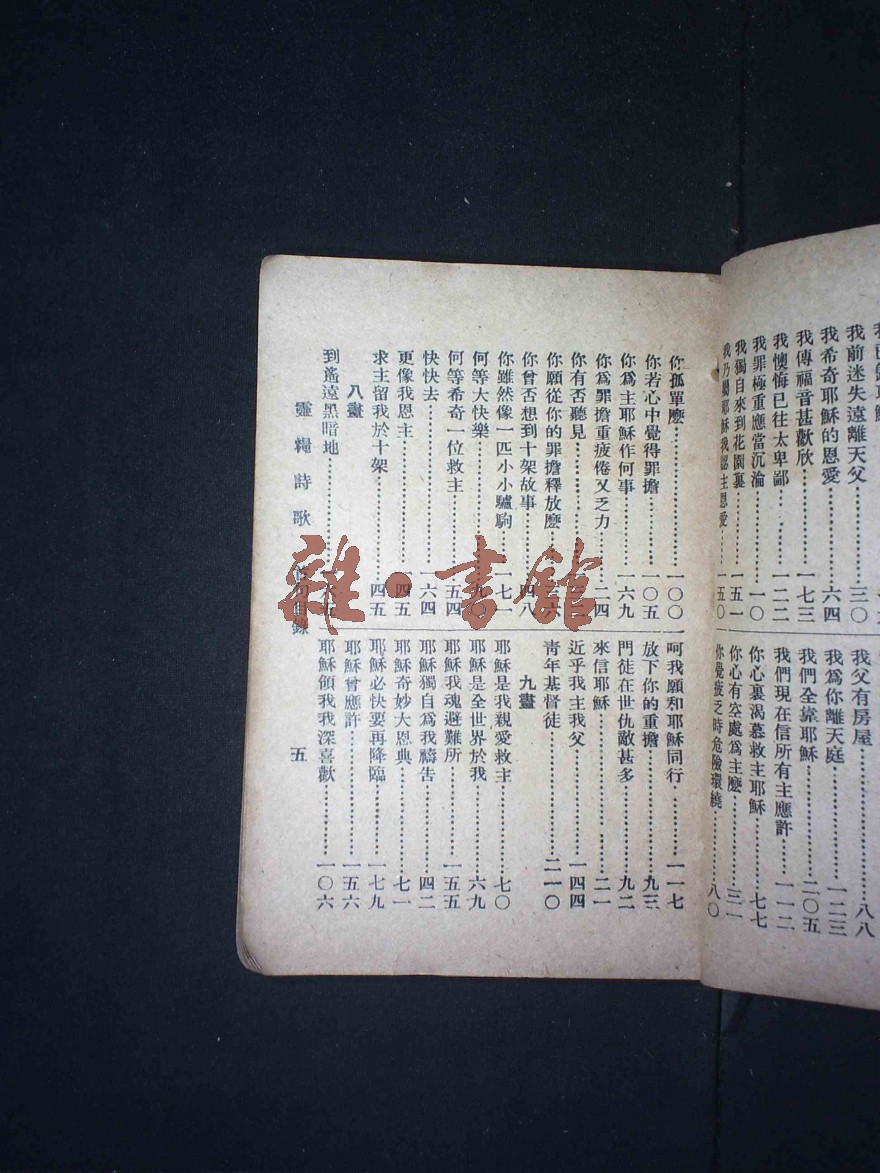 我前迷失遠離天父 三〇
我希奇耶穌的恩愛 六四
我傳福音甚歡欣 一七三
我懊悔已往太卑鄙 一二二
我罪極重應當沉淪 一〇
我獨自來到花園裏 一五一
我乃屬耶穌我認主恩愛 一五〇
我父有房屋 八八
我爲你離天庭 一二三
我們全靠耶穌 二〇五
我們現在信所有主應許 一一二
你心裏渴慕救主耶穌 七七
你心有空處爲主麽 三一
你覺疲乏時危險環繞 八〇
你孤單麽 一〇〇
你若心中覺得罪擔 一〇五
你爲主耶穌作何事 一六九
你爲罪擔重疲倦又乏力 二四
你有否聽見
你願從你的罪擔釋放麽
你曾否想到十架故事 四八
你雖然像一匹小小驢駒 一七一
何等大快樂
何等希奇一位救主 五四
快快去 一六四
更像我恩主 一四五
求主留我於十架 四五
八畫
到遙遠黑暗地
呵我願和耶穌同行 一一七
放下你的重擔 九三
門徒在世仇敵甚多 九二
來信耶穌 二一
近乎我主我父 一四四
青年基督徒 二一〇
九畫
耶穌是我親愛救主 七〇
耶穌是全世界於我 六九
耶穌我魂避難所 一五五
耶穌獨自爲我禱告 四二
耶穌奇妙大恩典 七一
耶穌必快要再降臨 一七九
耶穌曾應許 一五六
耶穌領我我深喜歡 一〇六
靈糧詩歌
五
雜·書館